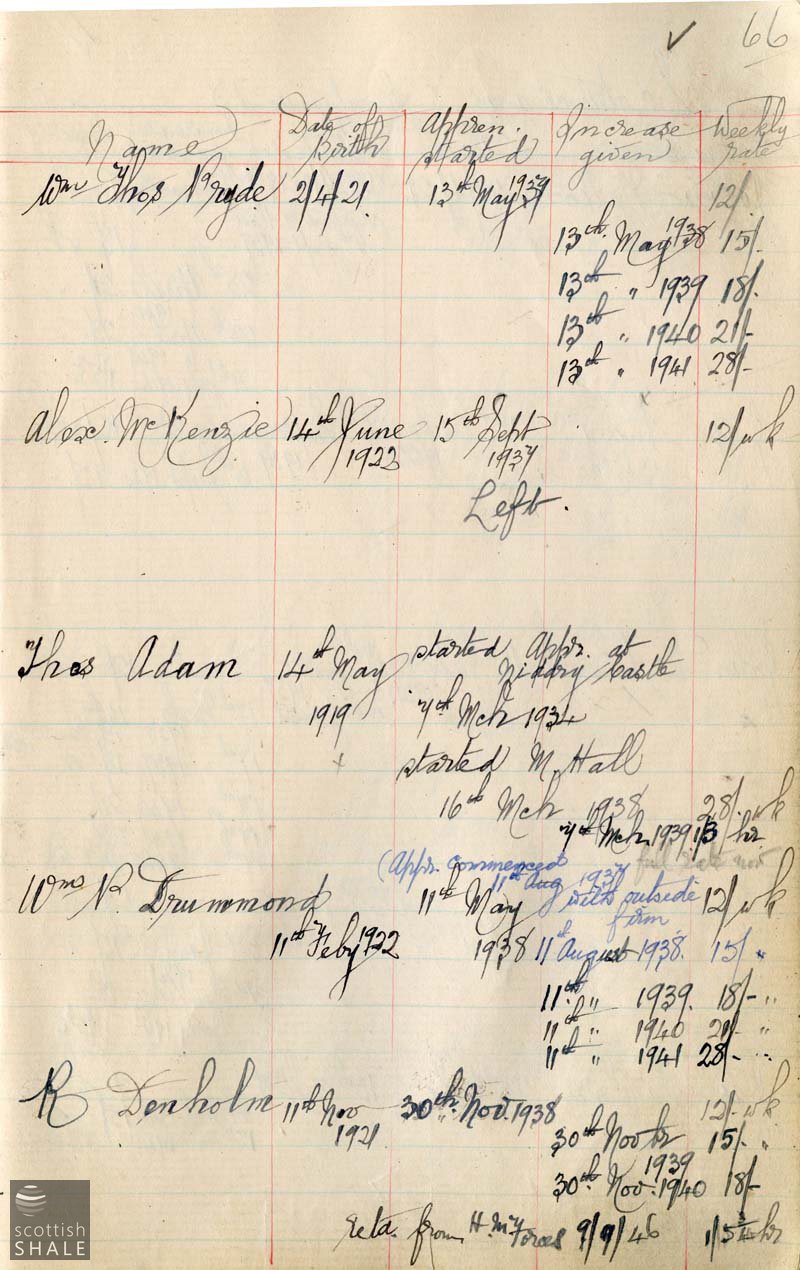 ✓ 66
Name Date of Birth Appren. started Increase given Weekly rate
Wm Thos Pryde 2/4/21 13th May 1937 12/
13th May 1938 15/-
13th " 1939 18/-
13th " 1940 21/-
13th " 1941 28/-
Alex. McKenzie 14th June 1922 15th Sept 1937 12/wk
Left.
Thos Adam 14th May 1919 started Appr. at
Niddry Castle
7th Mch 1934
started M. Hall
16th Mch 1938 28/- wk
7th Mch. 1939 1/3 hr
full rate now
(Appr. commenced
11th Aug 1937
with outside
firm
Wms R. Drummond 11th Feby 1922 11th May 1938 12/wk
11th August 1938. 15/ "
11th " 1939. 18/- "
11th " 1940 21/- "
11th " 1941 28/- "
R Denholm 11th Nov 1921 30th Nov. 1938 12/- wk
30th Novbr 1939 15/- "
30th Nov. 1940 18/-
retd. from H.My Forces 9/9/46 1/5¾ hr
scottish
SHALE